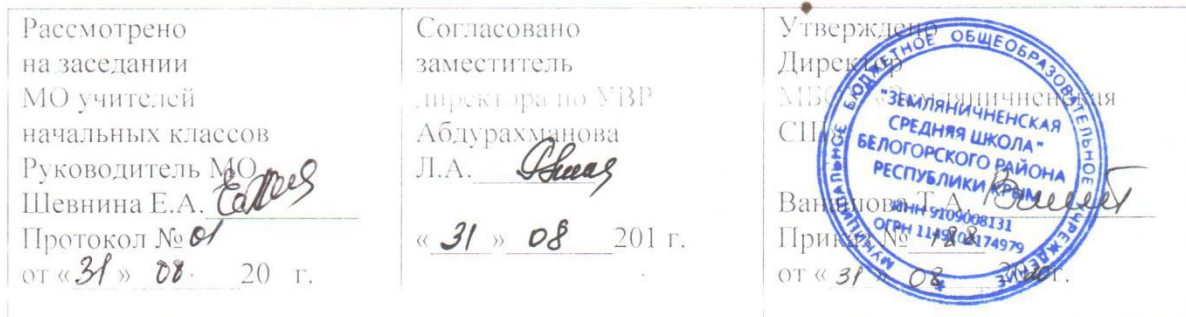 Рассмотрено
на заседании
МО учителей
начальных классов
Руководитель МО
Шевнина Е.А.
Протокол № 01
от « 31 » 08. 20 г.
Согласовано
заместитель
директора по УВР
Абдурахманова
Л.А.
« 31 » 08 201 г.
Утверждено
Директор
"Земляничненская
Т.А.
Приказ №
от « 31 » 08 г.
МУНИЦИПАЛЬНОЕ БЮДЖЕТНОЕ ОБЩЕОБРАЗОВАТЕЛЬНОЕ УЧРЕЖДЕНИЕ
"ЗЕМЛЯНИЧНЕНСКАЯ
СРЕДНЯЯ ШКОЛА"
БЕЛОГОРСКОГО РАЙОНА
РЕСПУБЛИКИ КРЫМ
ИНН 9109008131
ОГРН